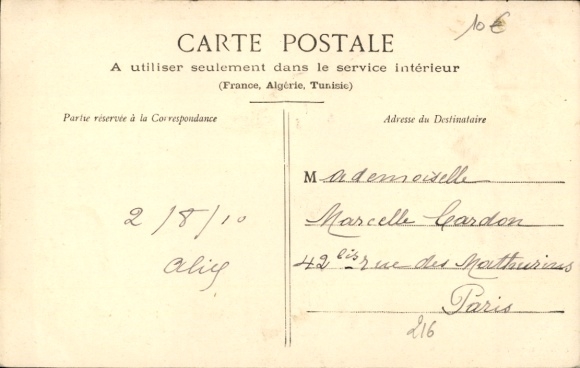 10€
CARTE POSTALE
A utiliser seulement dans le service intérieur
(France, Algérie, Tunisie)
Partie réservée à la Correspondance
Adresse du Destinataire
Mademoiselle
Marcelle Cardon
42 bis rue des Mathurins
Paris
2/8/10
216